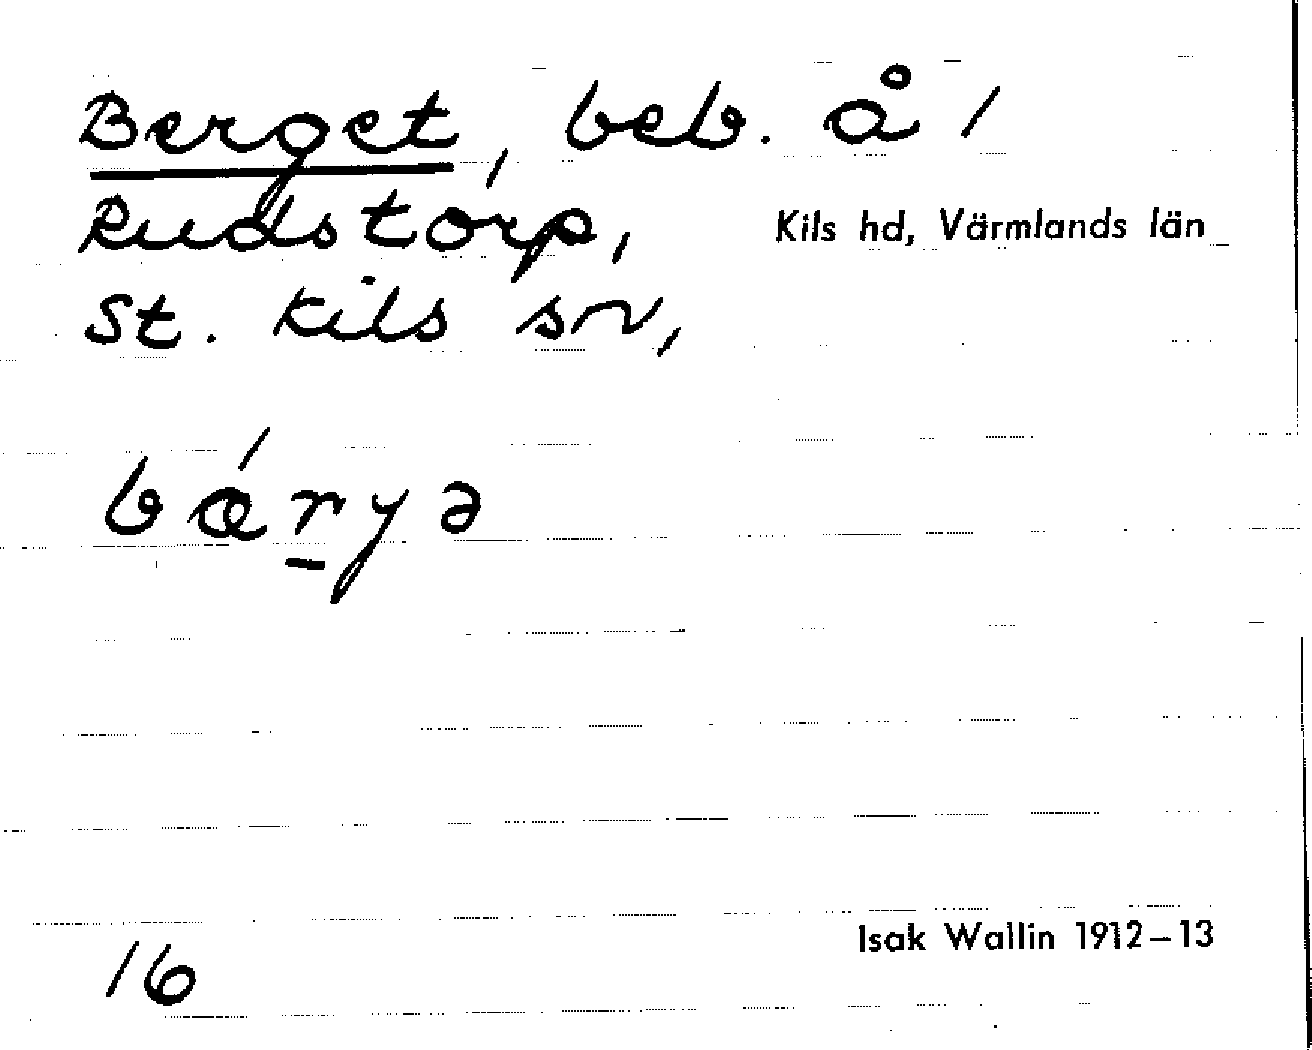 Berget, beb. å /
Rudstorp,
Kils hd, Värmlands län
St. Kils sn,
bárya
Isak Wallin 1912–13
16